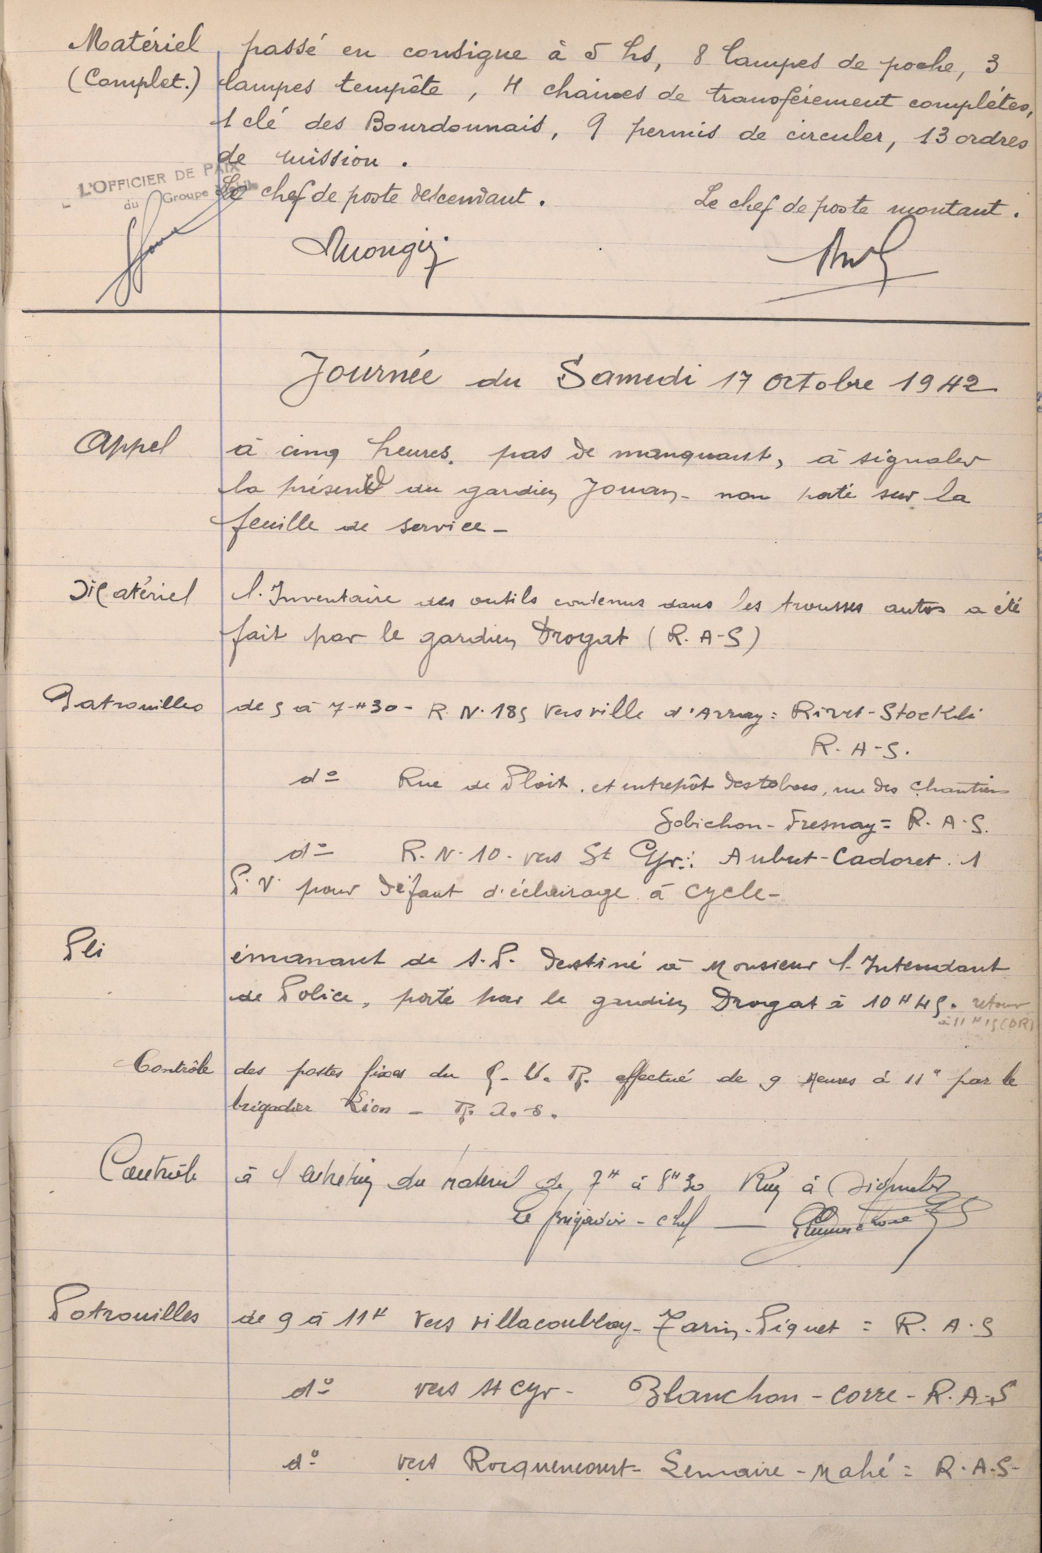 Matériel passé en consigne à 5 hs, 8 lampes de poche, 3
(Complet.) lampes tempête, 4 chaines de transférement complètes,
1 clé des Bourdonnais, 9 permis de circuler, 13 ordres
de mission.
L'OFFICIER DE PAIX
du Groupe
Le chef de poste descendant. Le chef de poste montant.
Journée du Samedi 17 octobre 1942
Appel à cinq heures. pas de manquant, à signaler
la présence du gardien Jouan - non porté sur la
feuille de service -
Matériel l'Inventaire des outils contenus dans les trousses autos a été
fait par le gardien Drogat (R.A-S)
Patrouilles de 5 à 7H30 - R.N. 185 vers ville d'Avray = Rivet - Stockli
R.A-S.
do Rue de et entrepôt des tabacs, rue des Chantiers
Gobichon - Fresnay = R.A.S.
do R.N.10. vers St Cyr : Aubut - Cadoret. 1
P.V. pour défaut d'éclairage à cycle -
Pli émanant de S.P. destiné à Monsieur l'Intendant
de Police, porté par le gardien Drogat à 10H45. retour
à 11H15 (DR)
Contrôle des postes fixes du effectué de 9 Heures à 11H par le
brigadier Lion - R.A.S.
Contrôle à l'entretien du matériel de 7H à 8H30 Rien à Signaler
Le Brigadier-chef
Patrouilles de 9 à 11H vers villacoublay - Tarin - Piquet = R.A.S
do vers St Cyr - Blanchon - Corre - R.A.S
do vers Rocquencourt - Lemaire - Mahé = R.A.S -